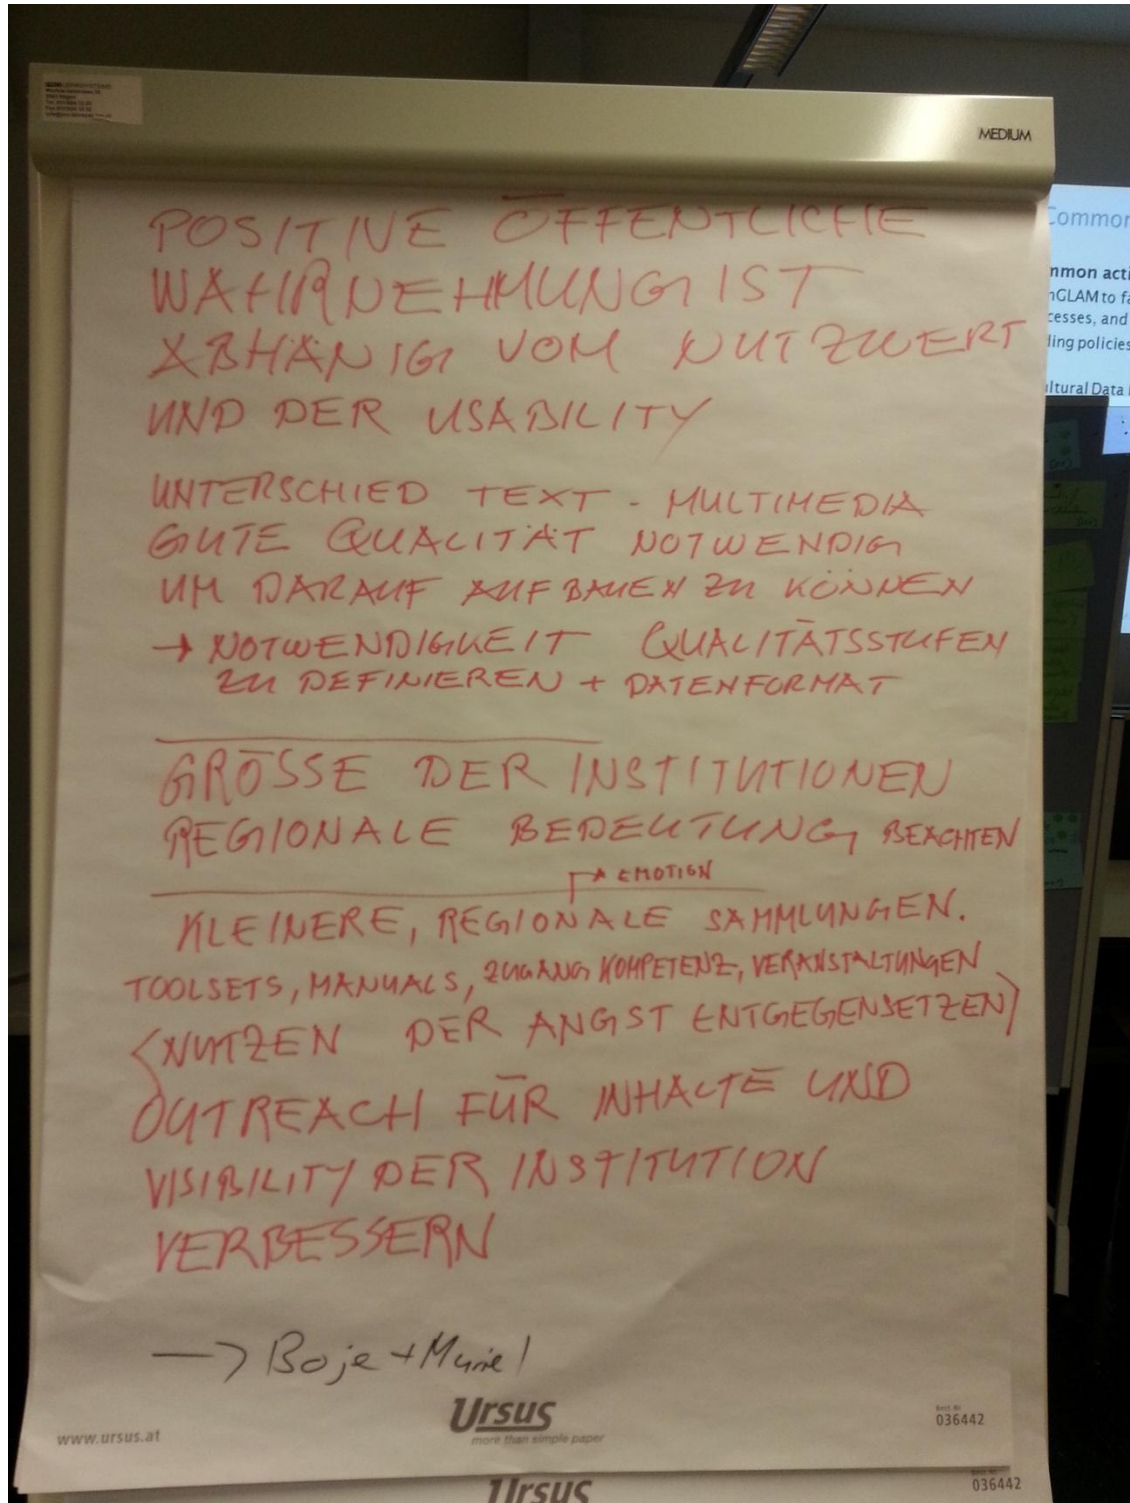 MEDIUM
POSITIVE ÖFFENTLICHE
WAHRNEHMUNG IST
ABHÄNIG VOM NUTZWERT
UND DER USABILITY
UNTERSCHIED TEXT - MULTIMEDIA
GUTE QUALITÄT NOTWENDIG
UM DARAUF AUFBAUEN ZU KÖNNEN
→ NOTWENDIGKEIT QUALITÄTSSTUFEN
ZU DEFINIEREN + DATENFORMAT
GRÖSSE DER INSTITUTIONEN
REGIONALE BEDEUTUNG BEACHTEN
EMOTION
KLEINERE, REGIONALE SAMMLUNGEN.
TOOLSETS, MANUALS, ZUGANG KOMPETENZ, VERANSTALTUNGEN
(NUTZEN DER ANGST ENTGEGENSETZEN)
OUTREACH FÜR INHALTE UND
VISIBILITY DER INSTITUTION
VERBESSERN
→ Boje + Muriel
www.ursus.at
Ursus
more than simple paper
Best.Nr.
036442
Ursus
Best.Nr.
036442
Common
mmon acti
nGLAM to fa
cesses, and
ling policies
ltural Data